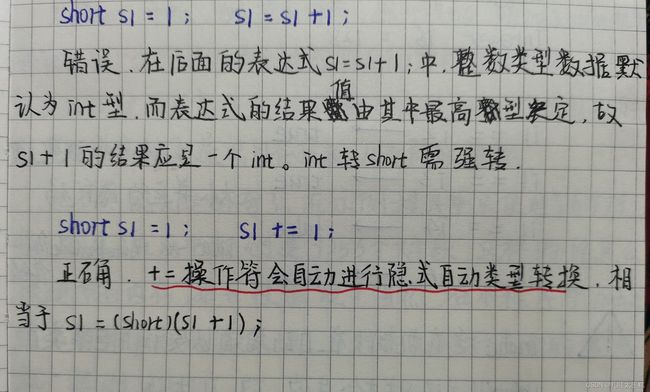 short s1 = 1;　s1 = s1 + 1;
错误．在后面的表达式 s1 = s1 + 1; 中，整数类型数据默
认为 int 型．而表达式的结果值由其中最高类型决定，故
s1 + 1 的结果应是一个 int。int 转 short 需 强转．
short s1 = 1;　s1 += 1;
正确．+= 操作符会自动进行隐式自动类型转换．相
当于 s1 = (short)(s1 + 1);